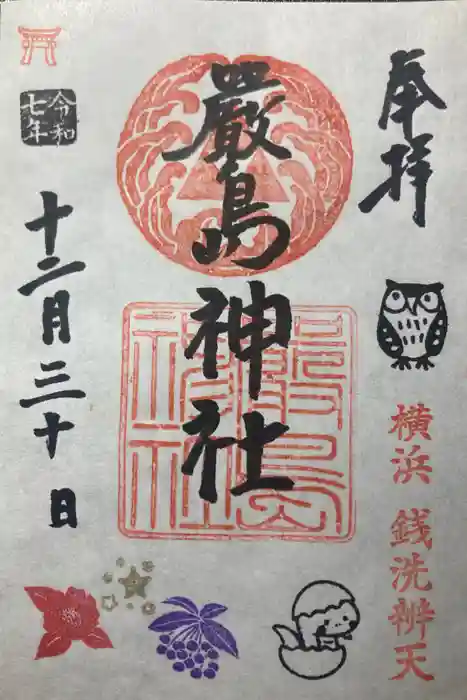 奉拝
横浜 銭洗辨天
嚴島神社
令和七年
十二月三十日